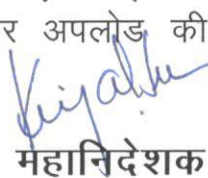 र अपलोड की
महानिदेशक